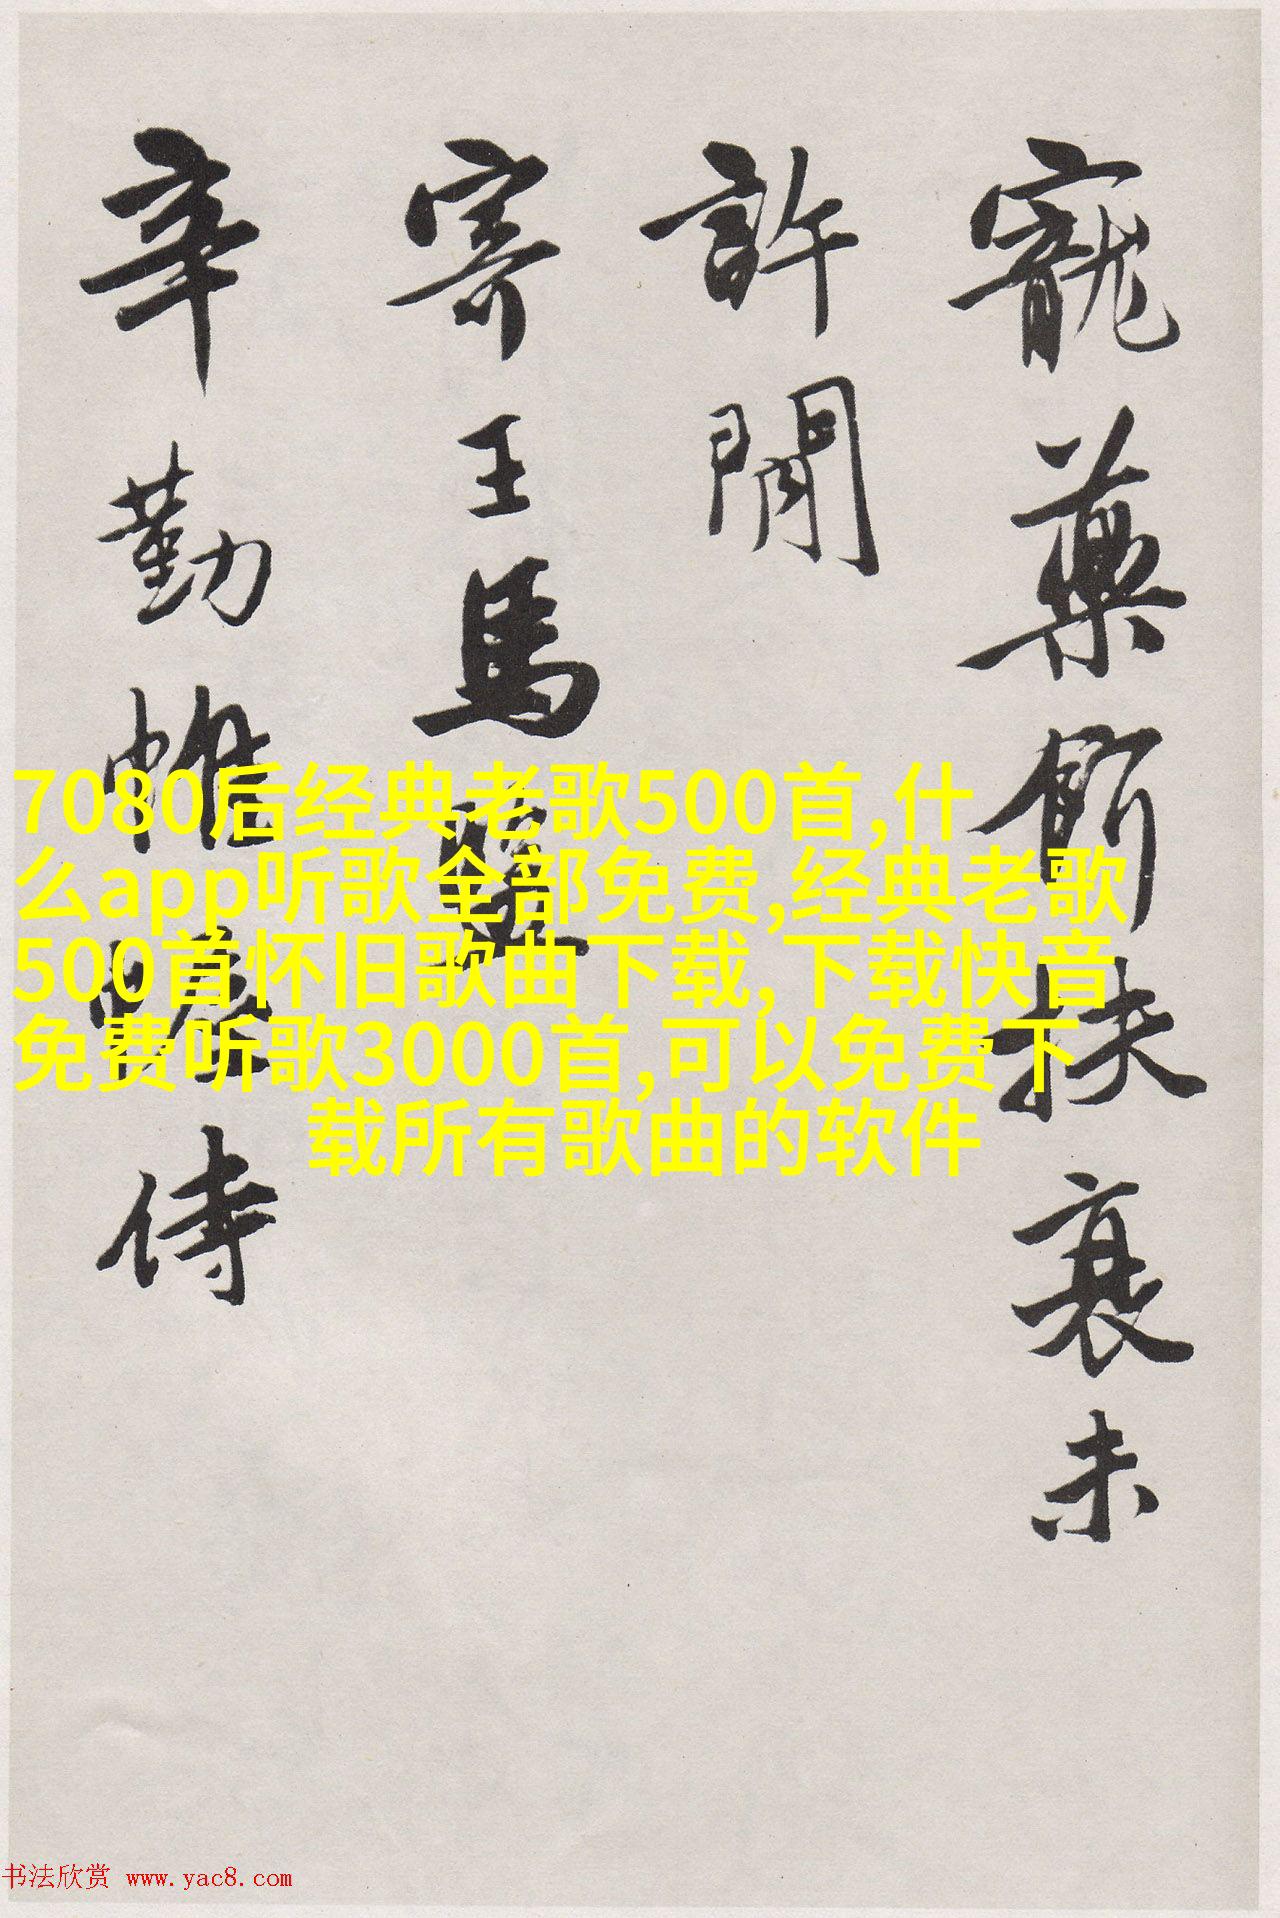 寵藥餌扶衰未
許閒
寄王馬
辛勤帷侍
7080后经典老歌500首,什
么app听歌全部免费,经典老歌
500首怀旧歌曲下载,下载快音
免费听歌3000首,可以免费下
载所有歌曲的软件
书法欣赏 www.yac8.com